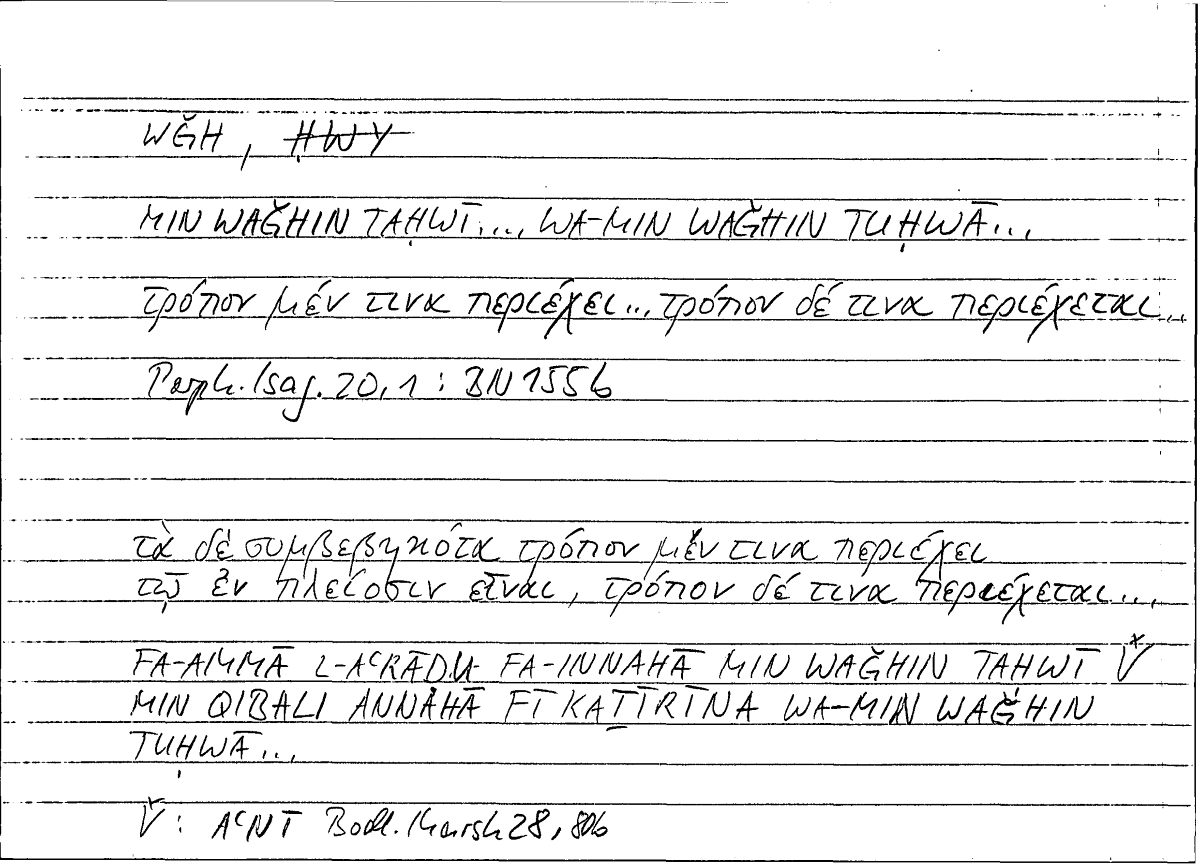 WǦH, ḤWY
MIN WAǦHIN TAḤWĪ.... WA-MIN WAǦHIN TUḤWĀ...
τρόπον μέν τινα περιέχει... τρόπον δέ τινα περιέχεται..
Porph. Isag. 20,1 : BN 155b
τὰ δὲ συμβεβηκότα τρόπον μέν τινα περιέχει
τῷ ἐν πλείοσιν εἶναι, τρόπον δέ τινα περιέχεται...
FA-AMMĀ L-AʿRĀḌU FA-INNAHĀ MIN WAǦHIN TAḤWĪ V˟
MIN QIBALI ANNAHĀ FĪ KAṮĪRĪNA WA-MIN WAǦHIN
TUḤWĀ...
V˟: AʿNĪ Bodl. Marsh 28, 80b